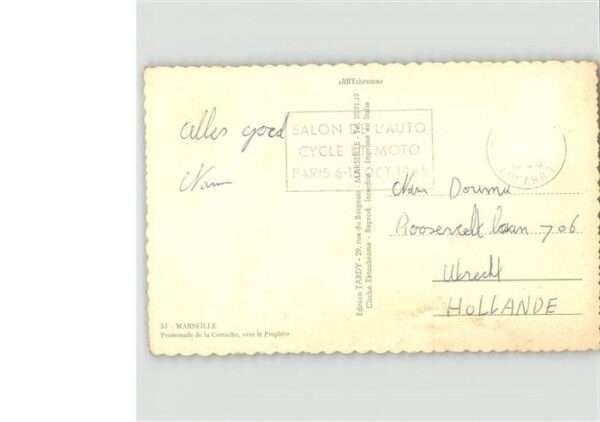 Alles goed
SALON DE L'AUTO
CYCLE ET MOTO
PARIS 6-1 OCT. 196
Roosevelt laan 706
Utrecht
HOLLANDE
Edition TARDY - 29, rue du Baignoir - MARSEILLE - Tél. 20.91.19
Cliché Ektachrome - Reprod. Interdite - Imprimé en Italie
53 - MARSEILLE
Promenade de la Corniche, vers le Prophète